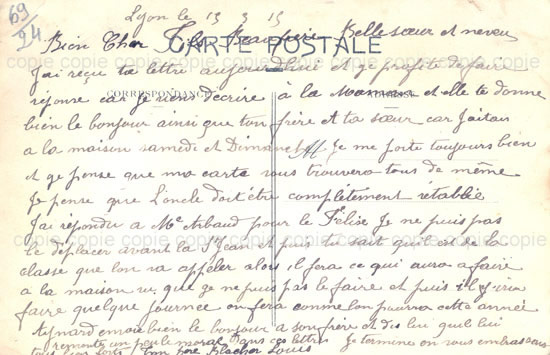 69
24
Lyon le 15 3 15
Bien Cher Fils Beau frère Belle sœur et neveu
CARTE POSTALE
J'ai reçu ta lettre aujourd'hui et je profite de faire
réponse car je viens d'écrire à la Maman et elle te donne
CORRESPONDANCE
bien le bonjour ainsi que ton frère et ta sœur car j'aitais
a la maison samedi et Dimanche Je me porte toujours bien
et je pense que ma carte vous trouvera tous de même
Je pense que L'oncle doit être complètement rétablie
J'ai répondu a Me Arbaud pour le Félise Je ne puis pas
le déplacer avant la St Jean et puis tu sait qu'il est de la
classe que l'on va appeler alors il fera ce qui aura a faire
à la maison vu que je ne puis pas le faire et puis s'il y ira
faire quelque journée on fera comme l'on pourra cette année
Aynard envoie bien le bonjour a son frère et dis lui qu'il lui
remonte un peu le moral dans ces lettres Je termine en vous embrassant
tous ton père Blacher Louis
copie copie copie copie copie copie